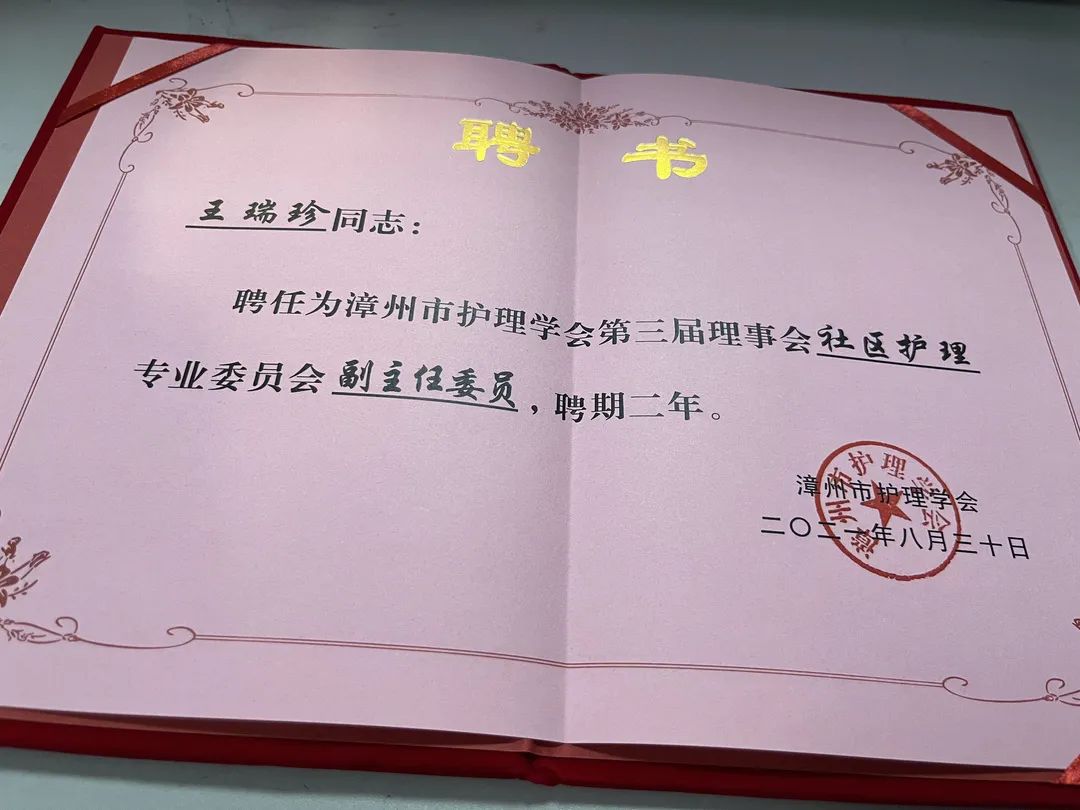 聘 书
王瑞珍同志：
聘任为漳州市护理学会第三届理事会社区护理
专业委员会副主任委员，聘期二年。
漳州市护理学会
二〇二一年八月三十日
漳州市护理学会